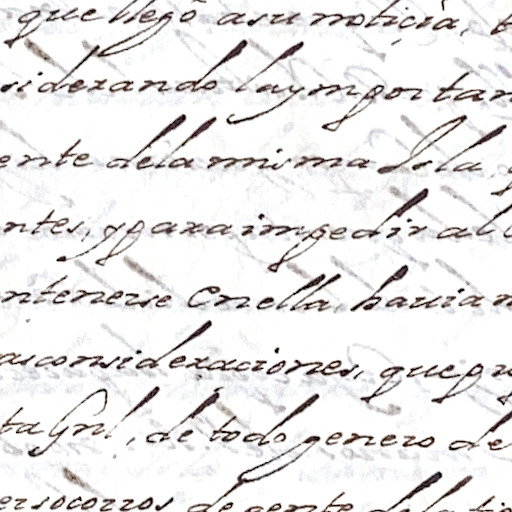 que llegò asu notiçia,
siderando laymportan
ente dela misma Isla
ntes, ypara impedir al
ntenerse enella, hauian
asconsideraciones, que pu
ta Gnl, de todo genero de
ersocorros de gente dela